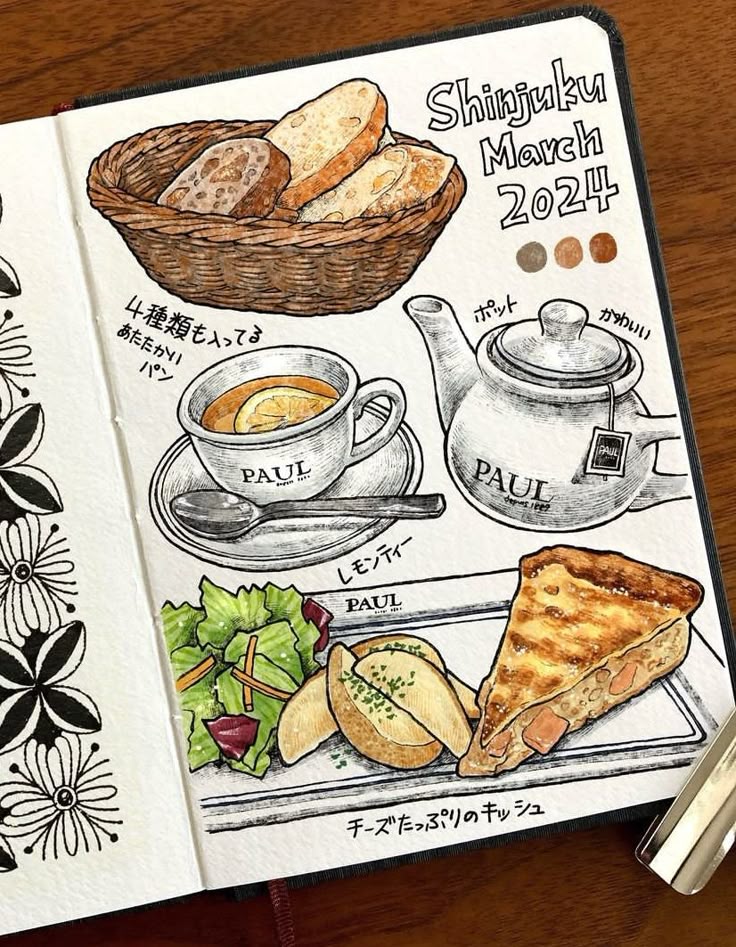 Shinjuku
March
2024
4種類も入ってる
あたたかい
パン
ポット
かわいい
PAUL
depuis 1889
PAUL
PAUL
depuis 1889
レモンティー
PAUL
チーズたっぷりのキッシュ